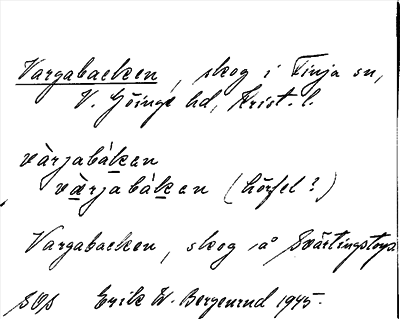 Vargabacken, skog i Finja sn,
V. Göinge hd, Krist. l.
vàrjabàkan
værjabákan (hörfel?)
Vargabacken, skog på Svärtingstorp
SOS Erik W. Bergenrud 1945.